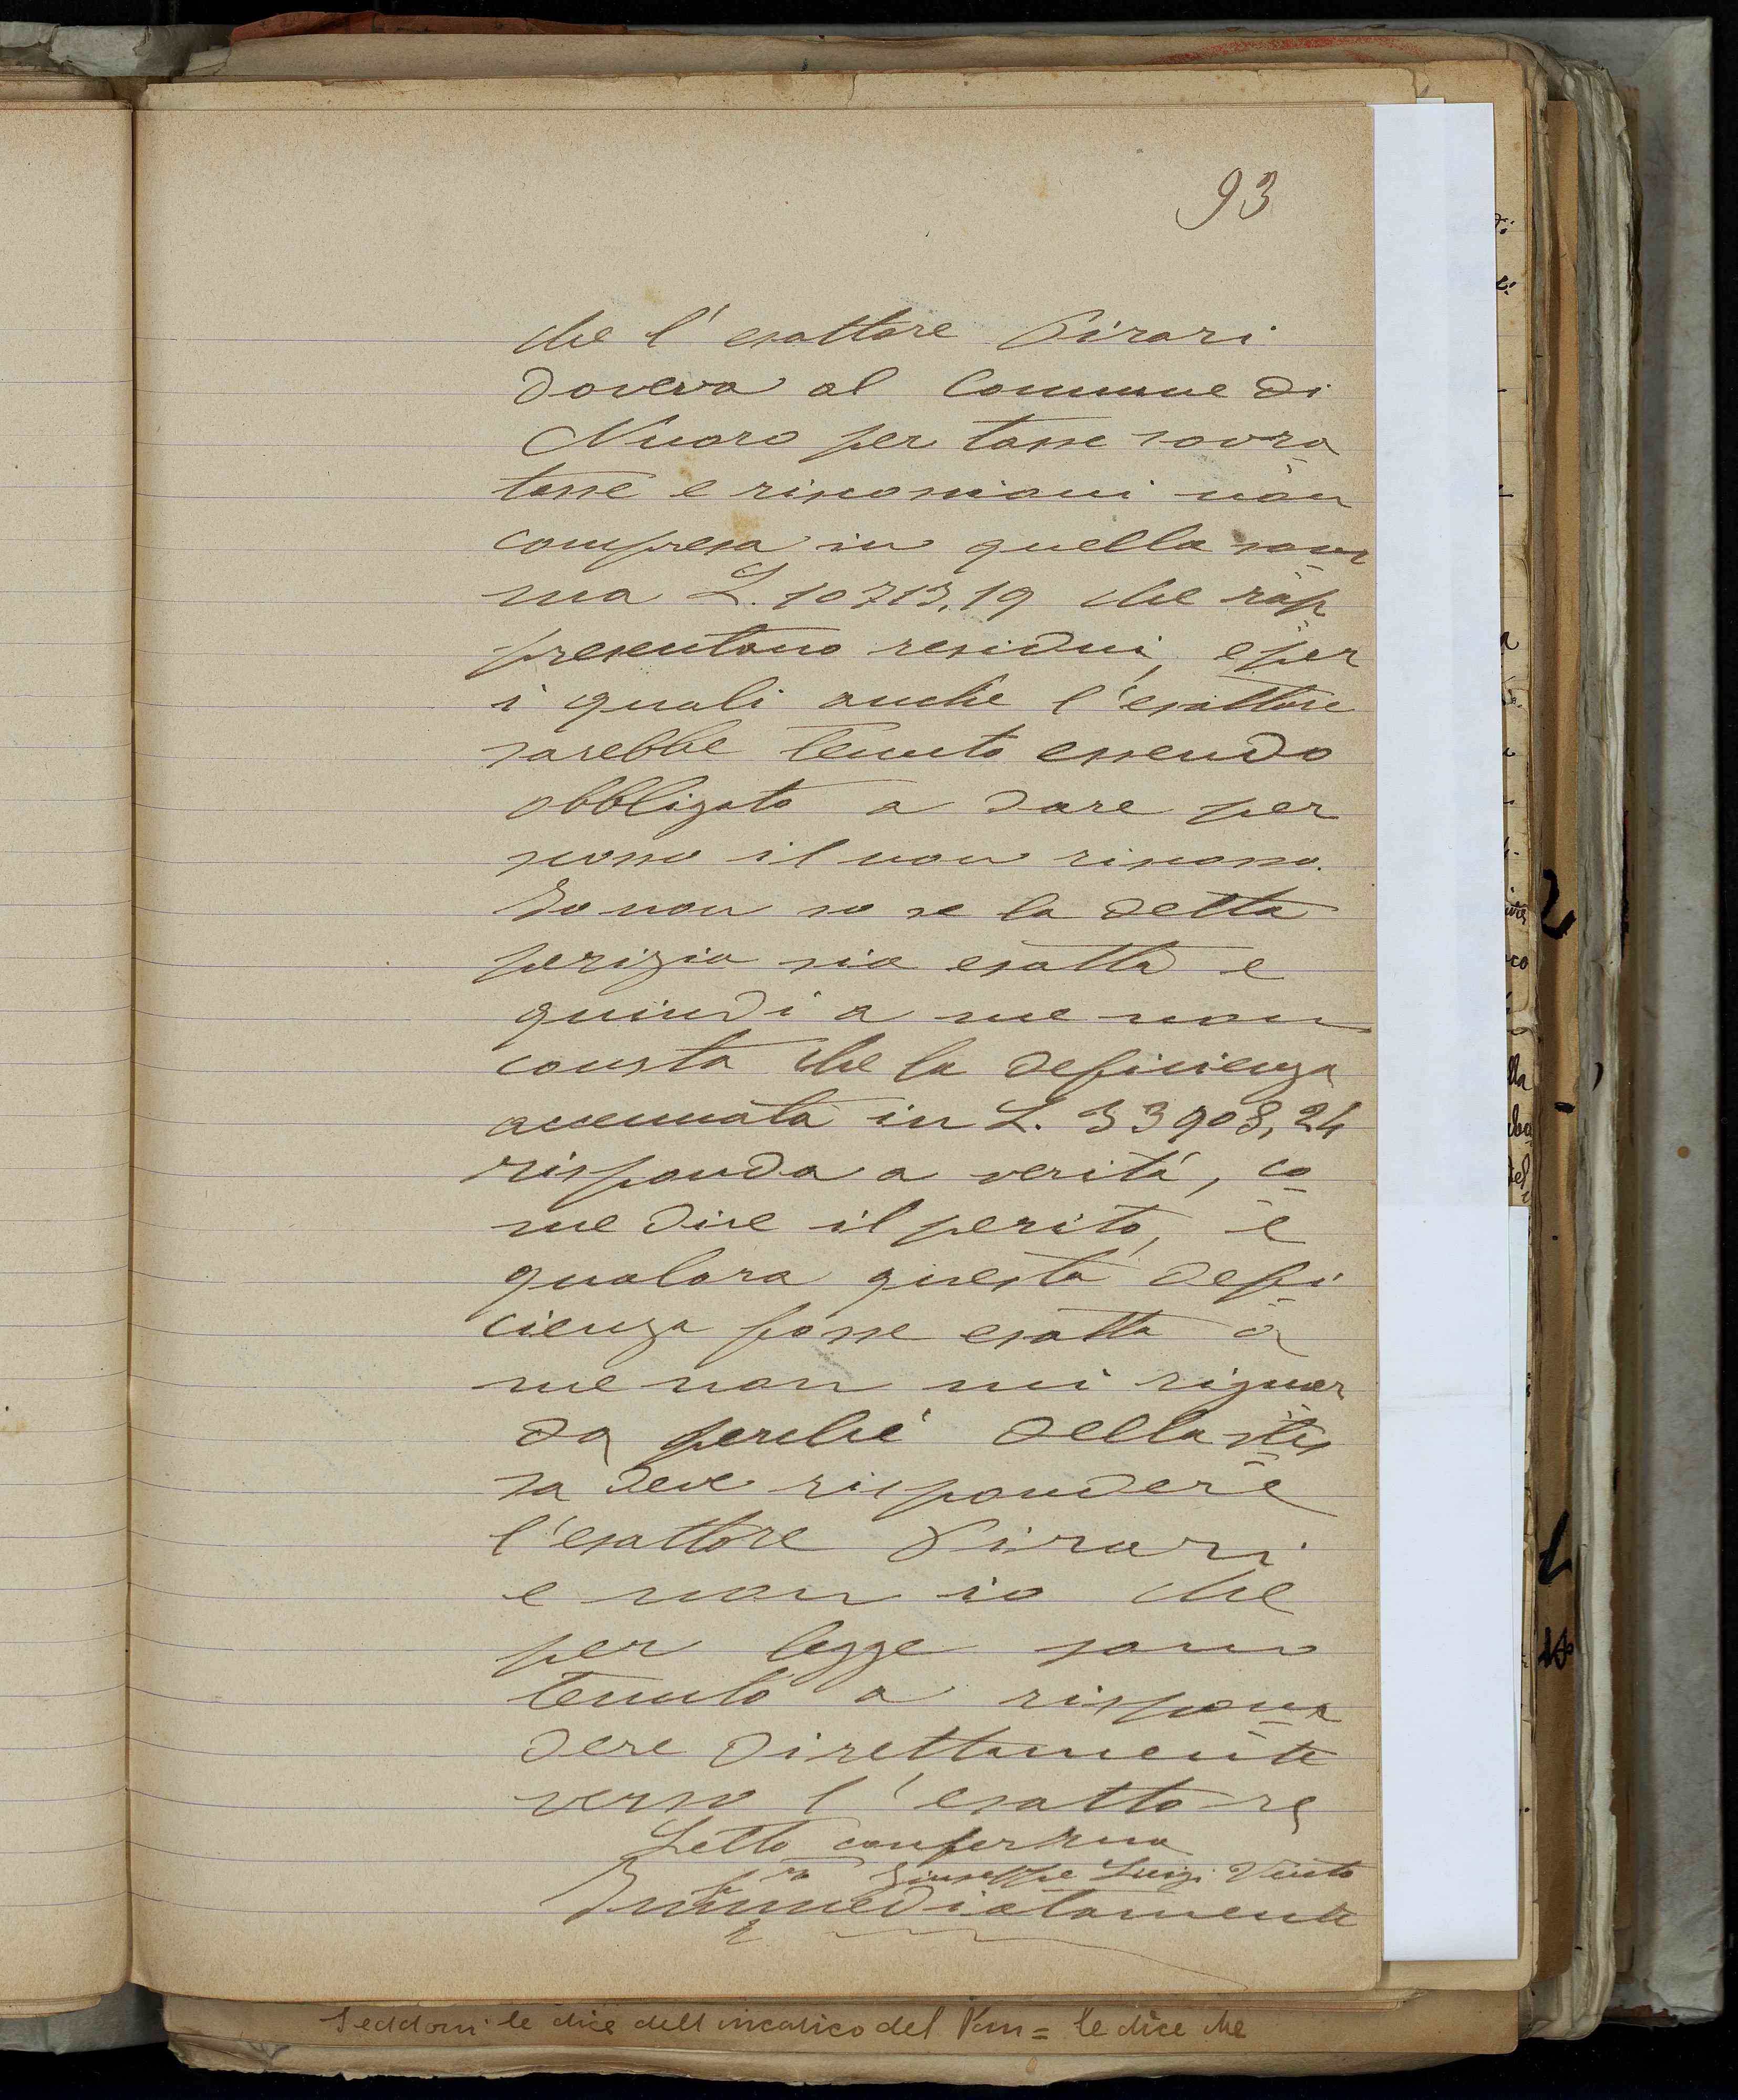 93
che l'esattore Pirari
doveva al Comune di
Nuoro per tasse sovra
tasse e riscossioni non
compresa in quella som
ma L. 10713,19 che rap
presentano residui, e per
i quali anche l'esattore
sarebbe tenuto essendo
obbligato a dare per
scosso il non riscosso.
Io non so se la detta
perizia sia esatta e
quindi a me non
consta che la deficienza
accennata in L. 33908,24
risponda a verità, co
me dice il perito, e
qualora questa defi
cienza fosse esatta a
me non mi riguar
da perché della stes
sa deve rispondere
l'esattore Pirari
e non io che
per legge sono
tenuto a rispon
dere direttamente
verso l'esattore
Letto conferma
Giuseppe Luigi
Immediatamente
le dice dell'incarico del = le dice che